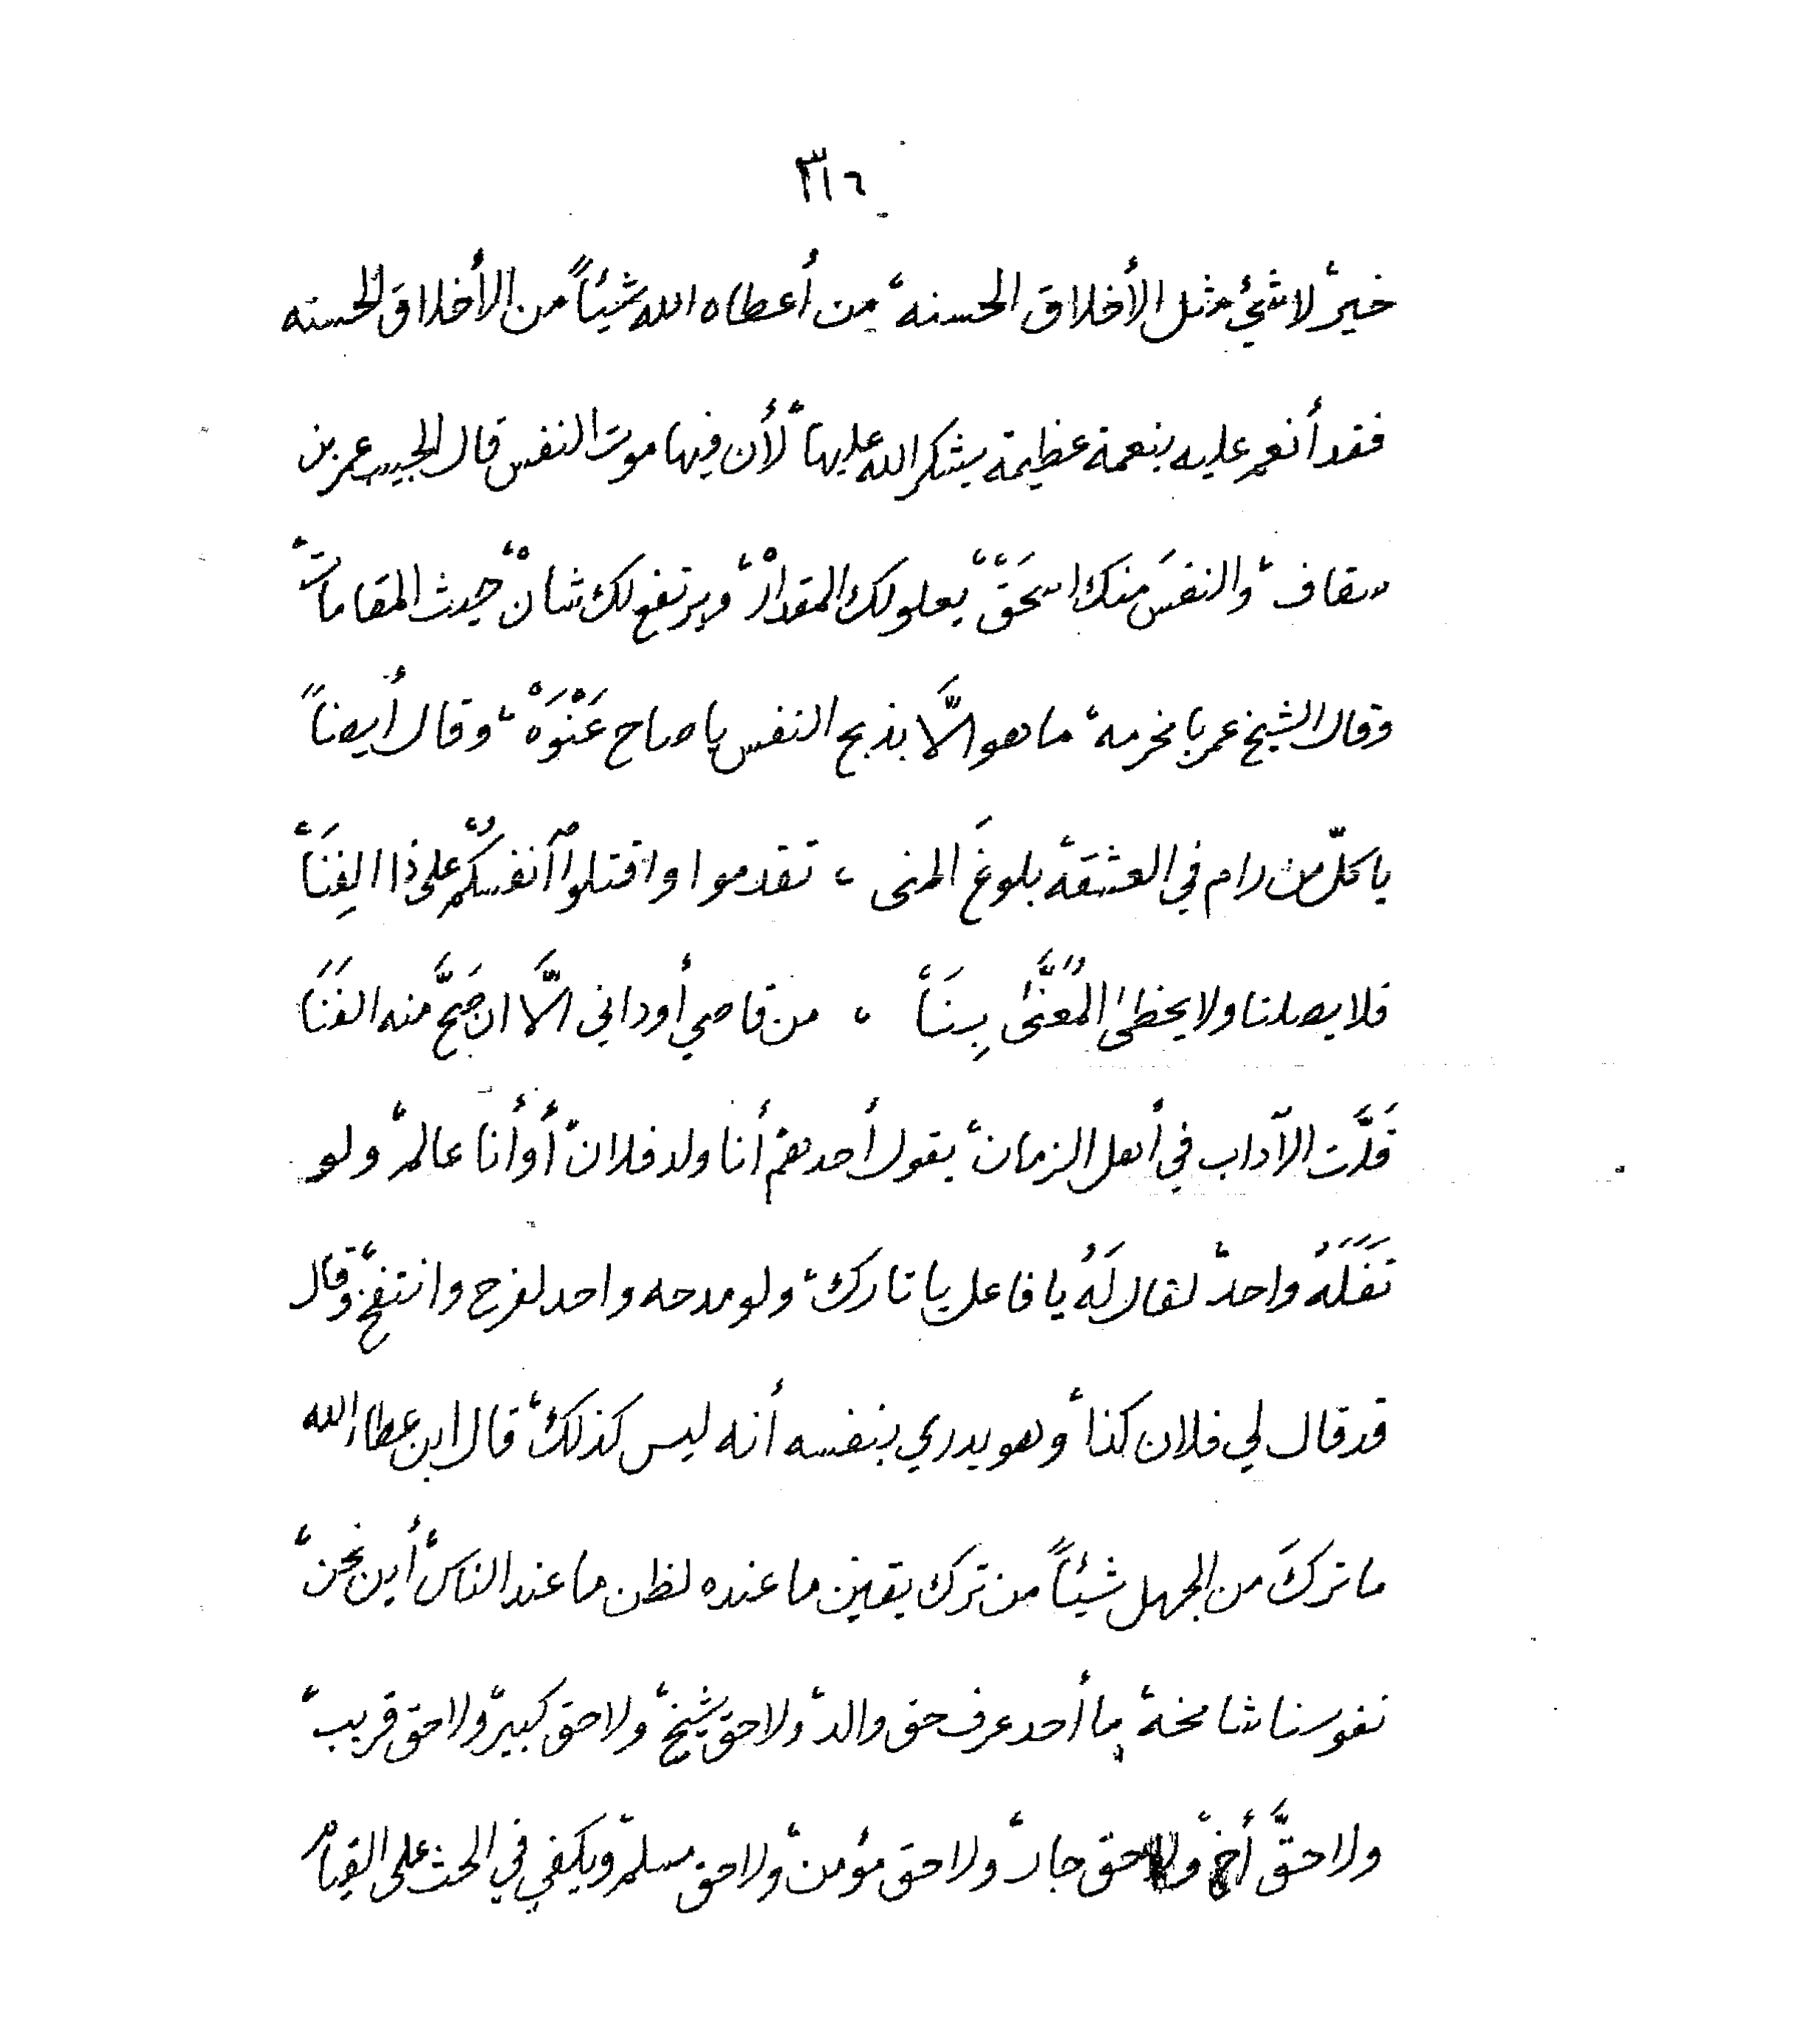 ٣١٦
خير، لا شيء مثل الأخلاق الحسنه، من أعطاه الله شيئاً من الأخلاق الحسنه
فقد أنعم عليه بنعمة عظيمة يشكر الله عليها، لأن فيها موت النفس قال الحبيب عمر بن
سقاف، والنفسَ منك اسحَقْ، يعلو لك المقدارْ، ويرتفع لك شانْ، حيث المقامات،
وقال الشيخ عمر بامخرمه، ما هو الَّا بذبح النفس يا صاح عَنْوَهْ، وقال أيضاً
يا كلّ من رام في العشقة، بلوغَ المنى، تقدموا واقتلوا أنفسكُمْ على ذا الفِنَا،
فلا يصلنا ولا يحظى المُعَنَّى بِنَا، من قاصي أو داني الَّا ان صَحَّ منه الفَنَا
قَلَّت الآداب في أهل الزمان، يقول أحدهم أنا ولد فلان، أو أنا عالم، ولو
تَفَلَهُ واحد، لقال لَهُ يا فاعل يا تارك، ولو مدحه واحد لفرح وانتفخ، وقال
قد قال لي فلان كذا، وهو يدري بنفسه أنه ليس كذلك، قال ابن عطاء الله
ما تركَ من الجهل شيئاً من ترك يقين ما عنده لظن ما عند الناس، أين نحن،
نفوسنا شامخة، ما أحد عرف حق والد، ولا حق شيخ، ولا حق كبير، ولا حق قريب،
ولا حقَّ أخ، ولا حق جار، ولا حق مؤمن، ولا حق مسلم، ويكفي في الحث على القيام